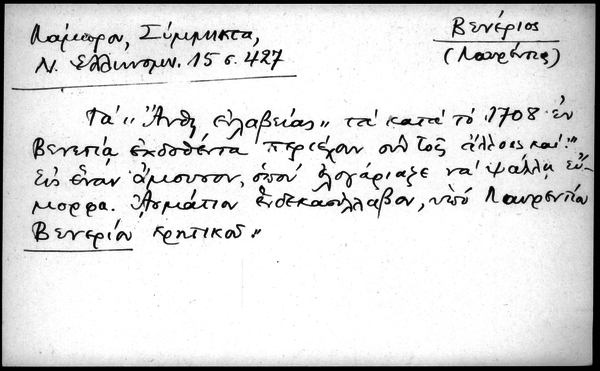 Λάμπρου, Σύμμικτα,
Ν. Ἑλληνομν. 15 σ. 427
Βενέριος
(Λαυρέντιος)
Τὰ "Ἄνθη εὐλαβείας" τὰ κατὰ τὸ 1708 ἐν
Βενετίᾳ ἐκδοθέντα περιέχουν σὺν τοῖς ἄλλοις καὶ "
Εἰς ἕναν ἄμουσον, ὁποὺ ἐλογάριαζε νὰ ψάλλῃ εὔ-
μορφα. Ἀσμάτιον ἑνδεκασύλλαβον, ὑπὸ Λαυρεντίου
Βενερίου κρητικοῦ"